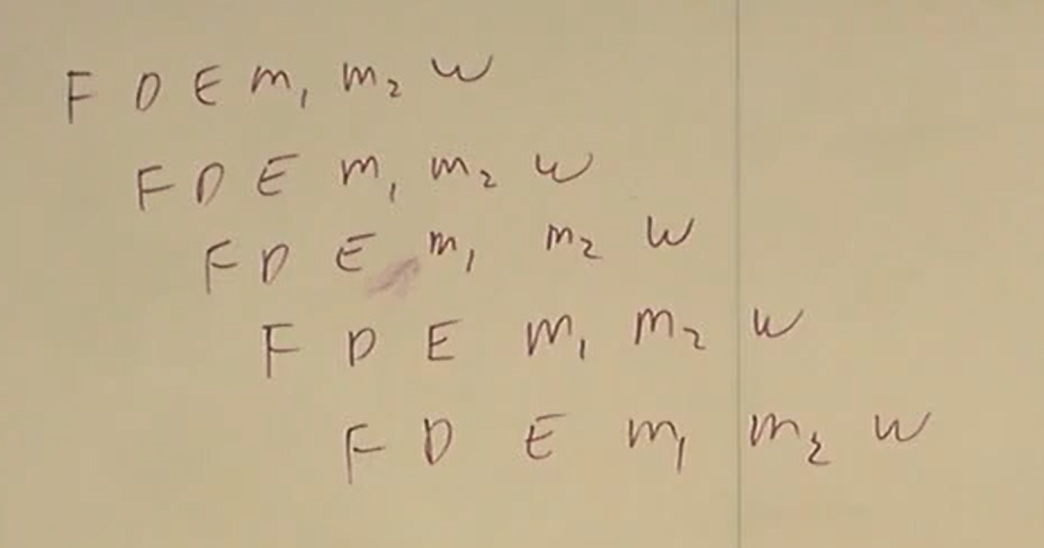 F D E m₁ m₂ W
F D E m₁ m₂ W
F D E m₁ m₂ W
F D E m₁ m₂ W
F D E m₁ m₂ W